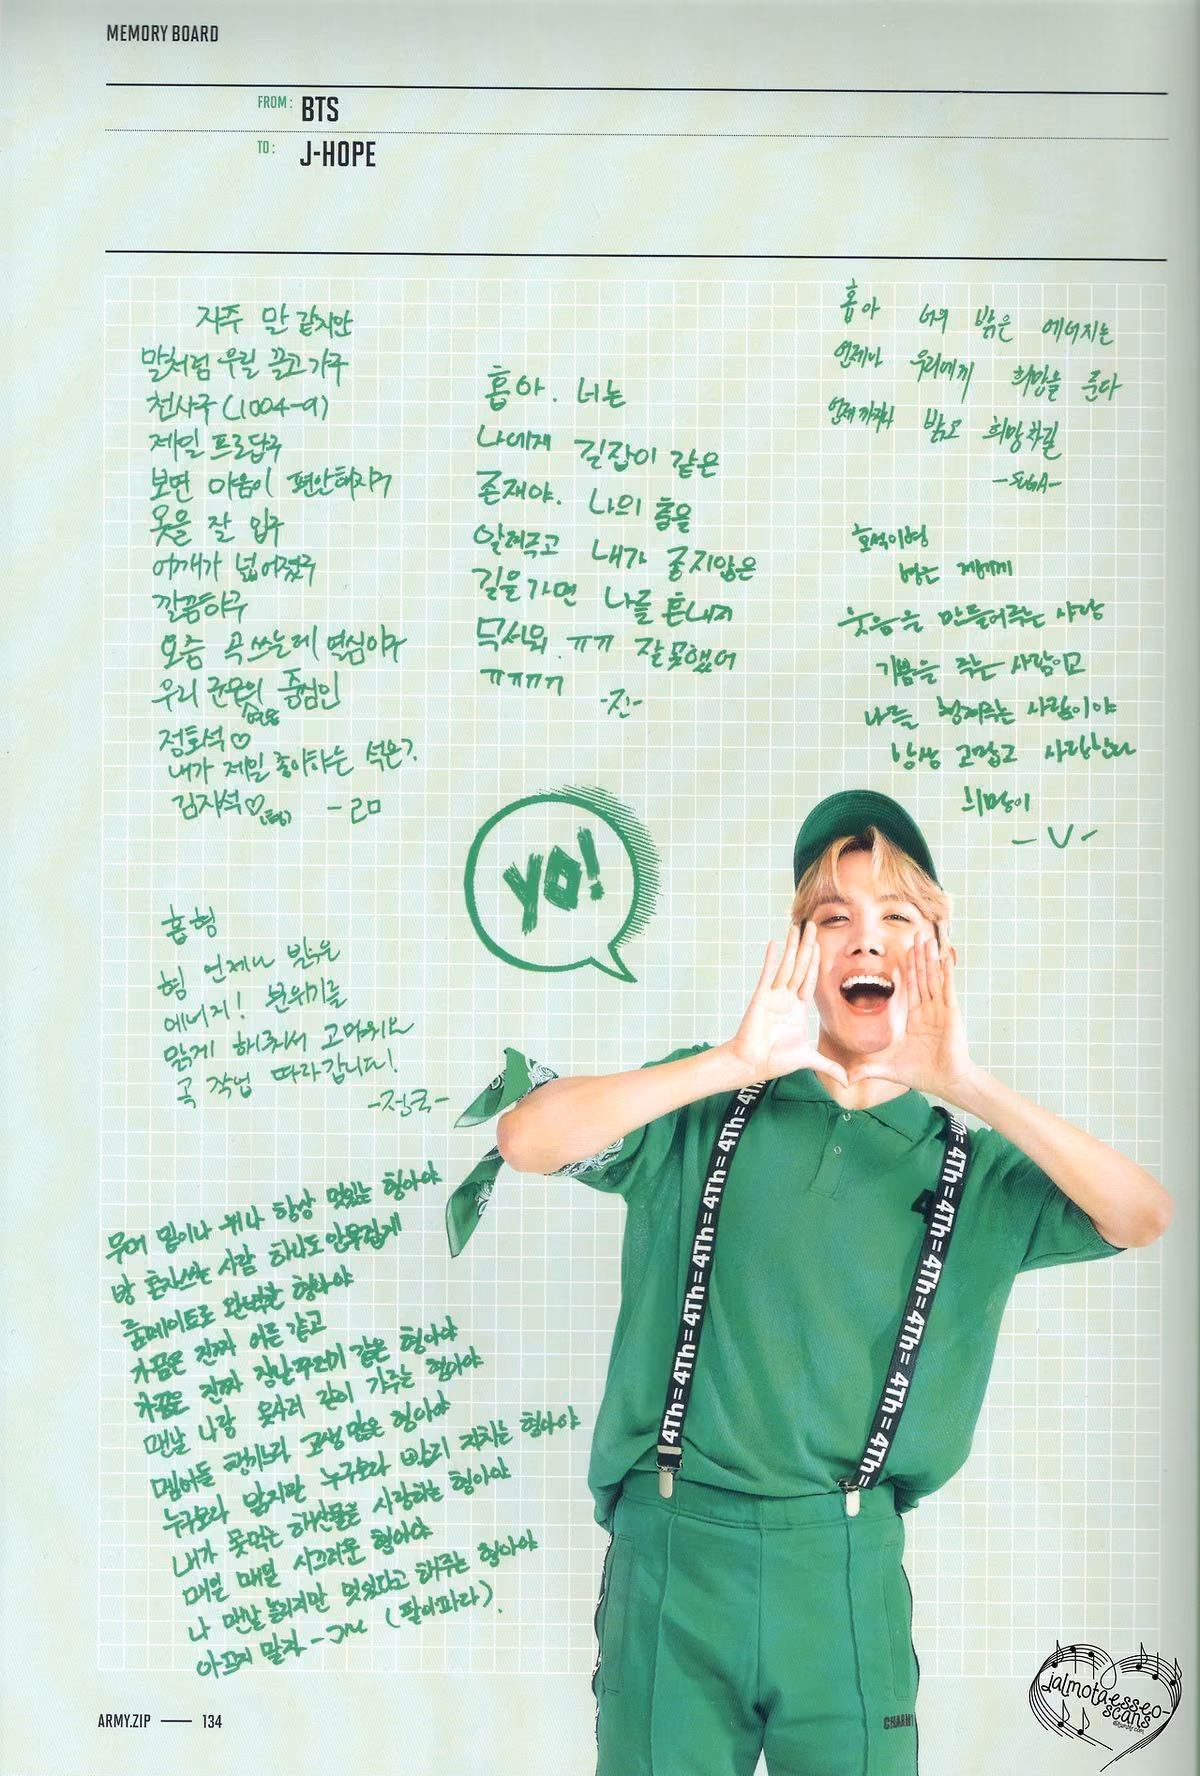 MEMORY BOARD
FROM: BTS
TO: J-HOPE
자주 말 같지만
말처럼 우릴 끌고가구
천사구 (1004-9)
제일 프로답구
보면 마음이 편안해지구
옷을 잘 입구
어깨가 넓어졌구
깔끔하구
요즘 곡 쓰는데 열심이구
우리 군모의 증험인
정호석♡
내가 제일 좋아하는 석은?
김자석♡
홉아. 너는
나에게 길잡이 같은
존재야. 나의 흠을
알려주고 내가 좋지않은
길을가면 나를 혼내지
무서워. ㅠㅠ 잘못했어
ㅠㅠㅠㅠ
-진-
홉아 너의 밝은 에너지는
언제나 우리에게 희망을 준다
언제까지나 밝고 희망차길
-SUGA-
호석이형
형은 제게
웃음을 만들어주는 사람
기쁨을 주는 사람이고
나를 챙겨주는 사람이야
항상 고맙고 사랑한다
희망이
-V-
YO!
홉형
형 언제나 밝은
에너지! 분위기를
맑게 해줘서 고마워요
곡 작업 따라갑니다!
-정국-
무대 밑이나 위나 항상 멋있는 형아야
방 혼자쓰는 사람 하나도 안부럽게
룸메이트로 완벽한 형아야
가끔은 진짜 어른 같고
가끔은 진짜 장난꾸러기 같은 형아야
맨날 나랑 옷사러 같이 가주는 형아야
멤버들 챙기느라 고생 많은 형아야
누구보다 밝지만 누구보다 빨리 지치는 형아야
내가 못먹는 해산물을 사랑하는 형아야
매일 매일 시끄러운 형아야
나 맨날 놀리지만 멋있다고 해주는 형아야
아프지 말자 -JM (팔이파라).
4Th=4Th=4Th=4Th=4Th=4Th
4Th=4Th=4Th=4Th=4Th=4Th=
ARMY.ZIP — 134
jalmotaesseo-
scans